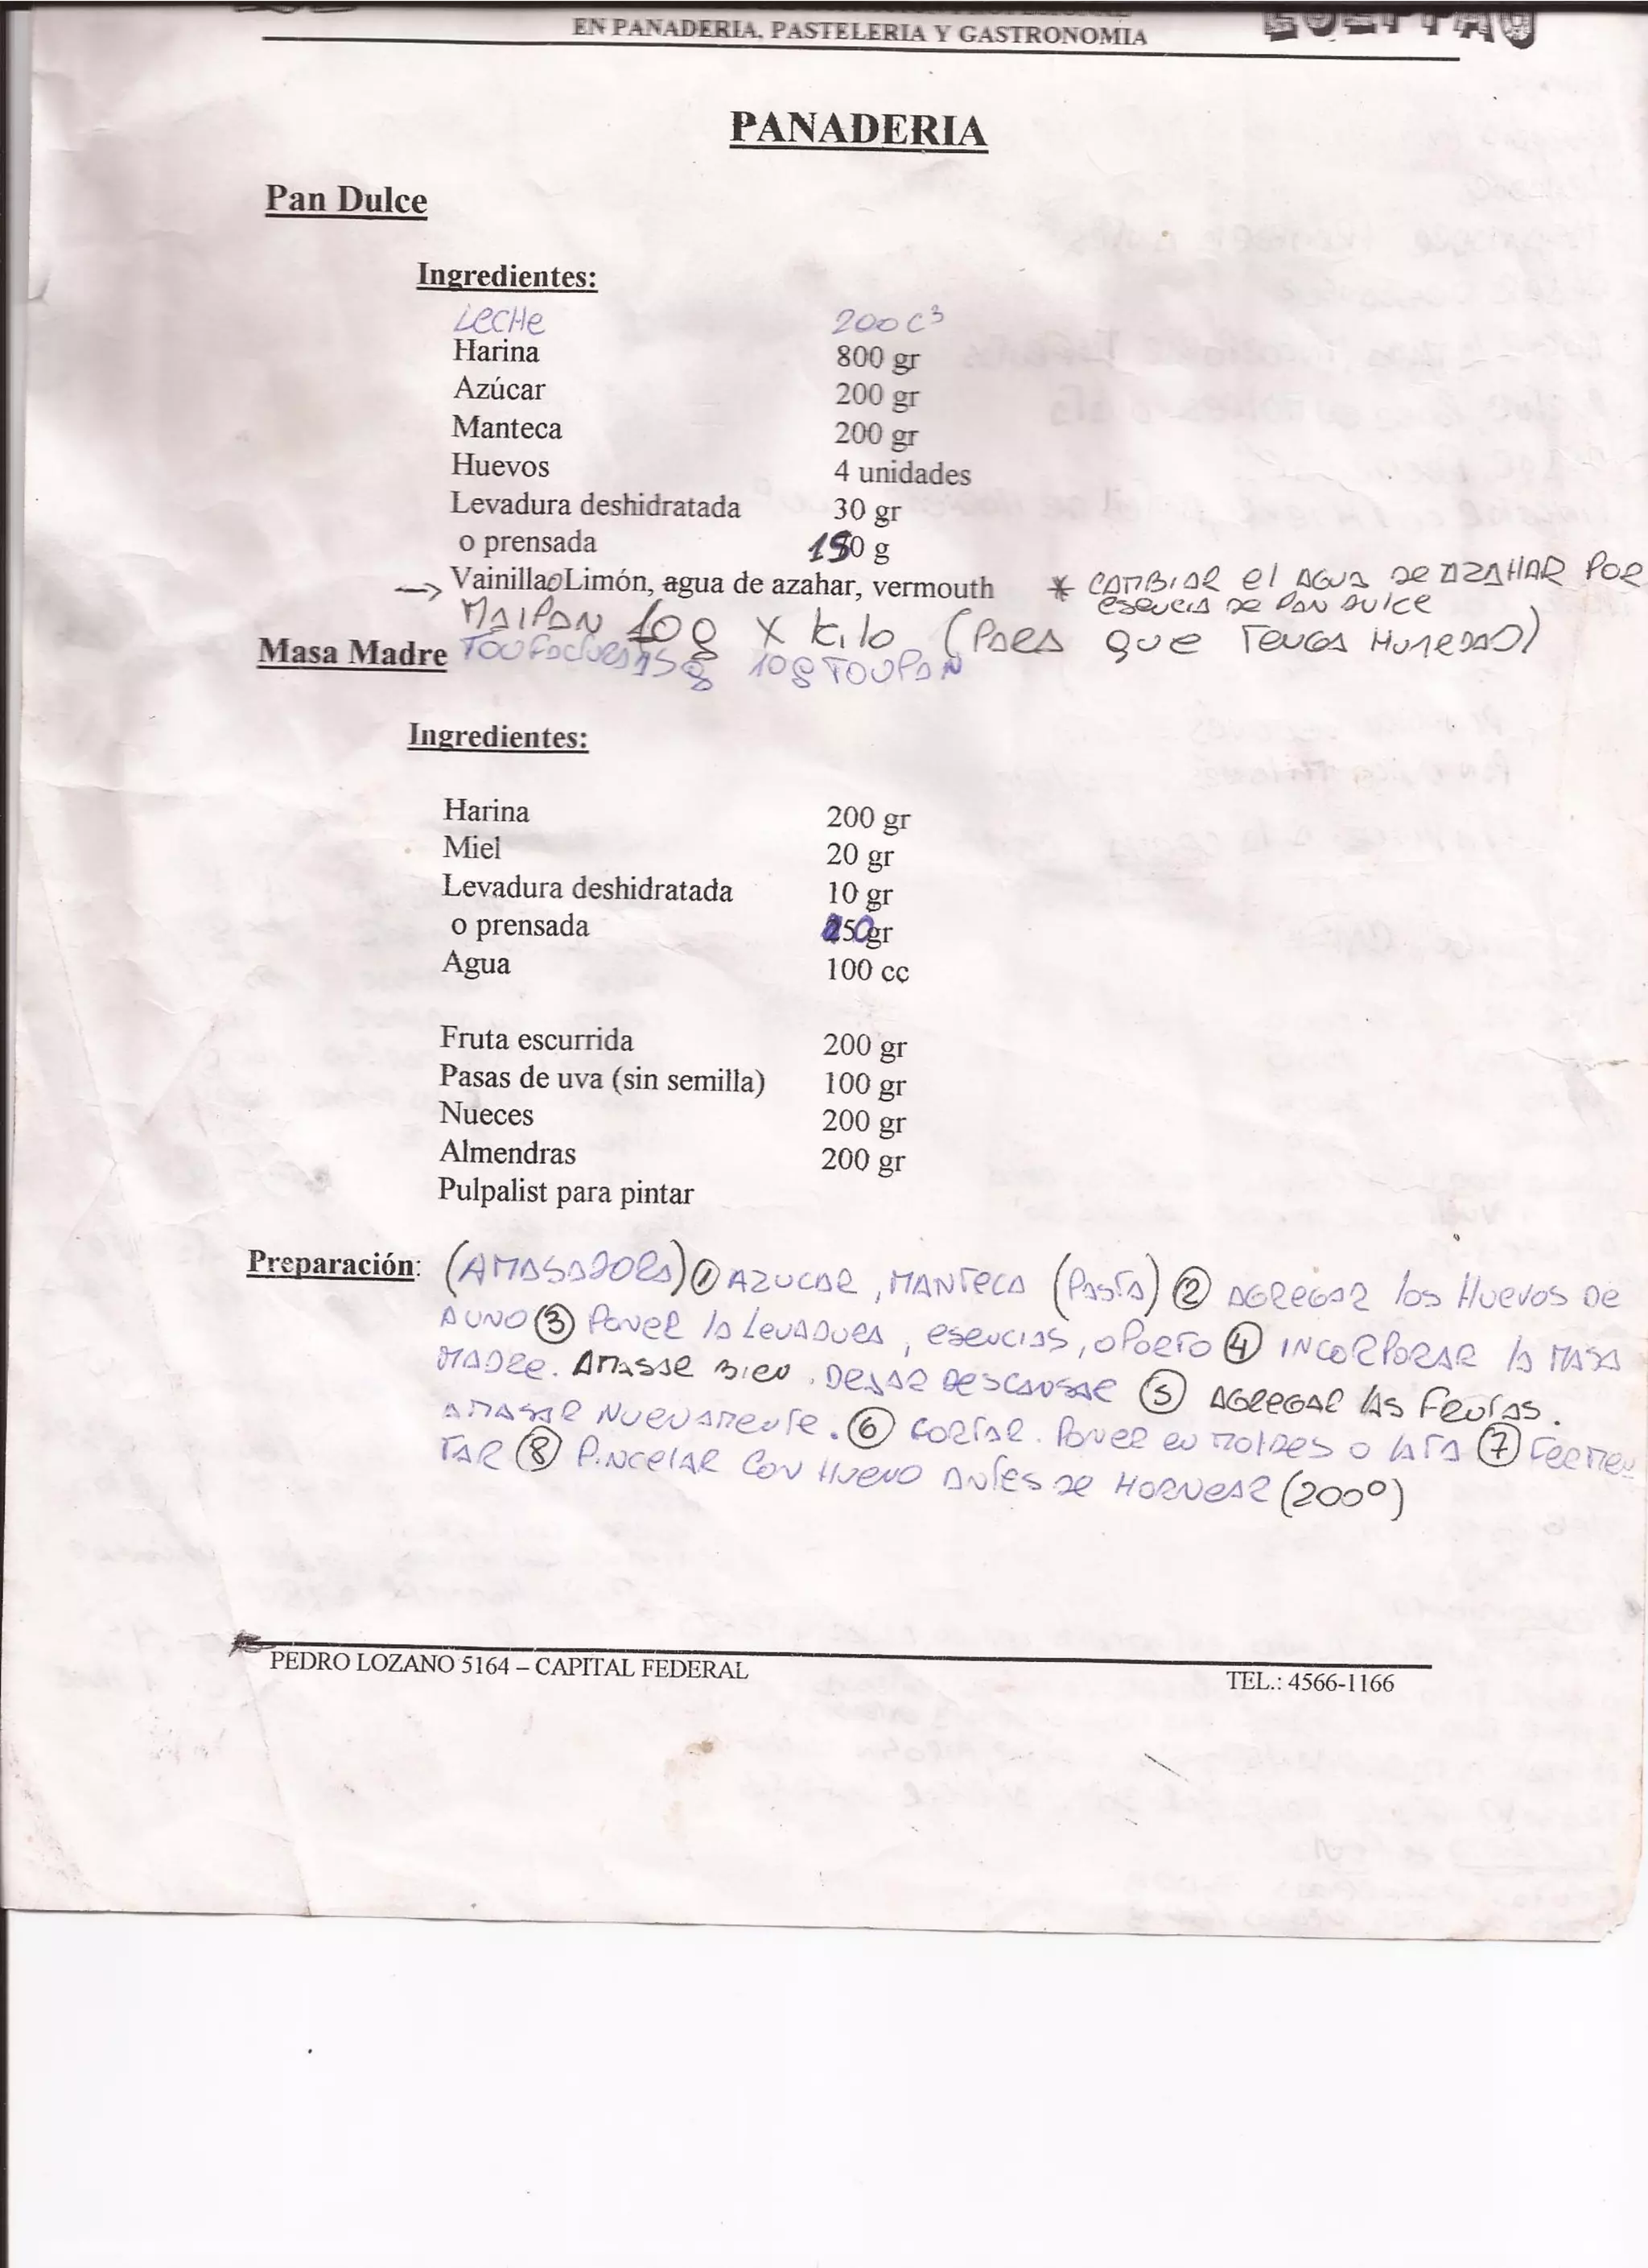 EN PANADERIA, PASTELERIA Y GASTRONOMIA
PANADERIA
Pan Dulce
Ingredientes:
LECHE 200 C³
Harina 800 gr
Azúcar 200 gr
Manteca 200 gr
Huevos 4 unidades
Levadura deshidratada 30 gr
o prensada 150 g
→ Vainilla o Limón, agua de azahar, vermouth * CAMBIAR el AGUA DE AZAHAR POR
ESENCIA DE PAN DULCE
MAIPAN 10 g X kilo (PARA QUE TENGA HUMEDAD)
Masa Madre 15g 10g TOUPAN
Ingredientes:
Harina 200 gr
Miel 20 gr
Levadura deshidratada 10 gr
o prensada gr
Agua 100 cc
Fruta escurrida 200 gr
Pasas de uva (sin semilla) 100 gr
Nueces 200 gr
Almendras 200 gr
Pulpalist para pintar
Preparación: (AMASADORA) ① AZUCAR, MANTECA (PASTA) ② AGREGAR los HUEVOS DE
A UNO ③ PONER lA LEVADURA, ESENCIAS, OPORTO ④ INCORPORAR lA MASA
MADRE. AMASAR BIEN. DEJAR DESCANSAR ⑤ AGREGAR lAS FRUTAS.
AMASAR NUEVAMENTE. ⑥ CORTAR. PONER EN MOLDES O LATA ⑦ FERMEN
TAR ⑧ PINCELAR CON HUEVO ANTES DE HORNEAR (200°)
PEDRO LOZANO 5164 – CAPITAL FEDERAL TEL.: 4566-1166